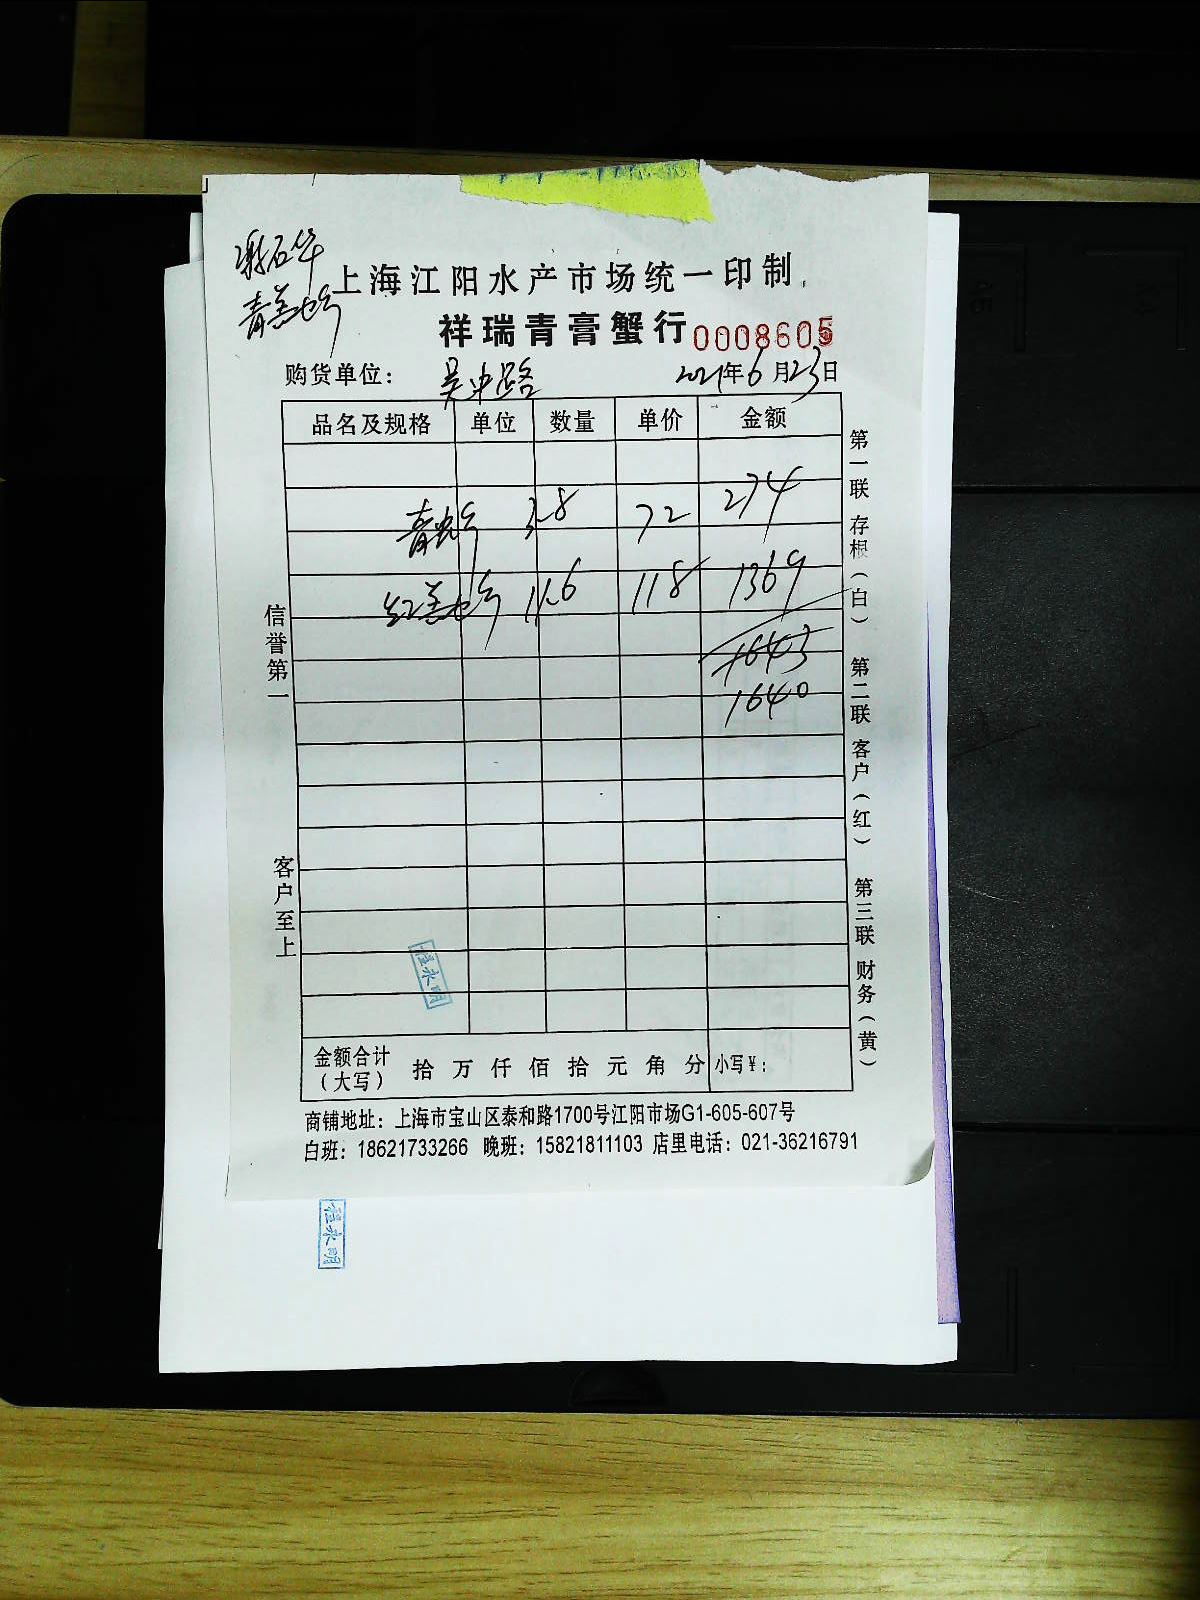 上海江阳水产市场统一印制
祥瑞青膏蟹行 0008605
购货单位： 吴中路 2021年6月23日
品名及规格 单位 数量 单价 金额
青 3.8 72 274
红膏 11.6 118 1369
1643
1640
金额合计（大写） 拾 万 仟 佰 拾 元 角 分 小写￥：
信誉第一 客户至上
第一联 存根（白） 第二联 客户（红） 第三联 财务（黄）
商铺地址：上海市宝山区泰和路1700号江阳市场G1-605-607号
白班：18621733266 晚班：15821811103 店里电话：021-36216791
程永明
程永明